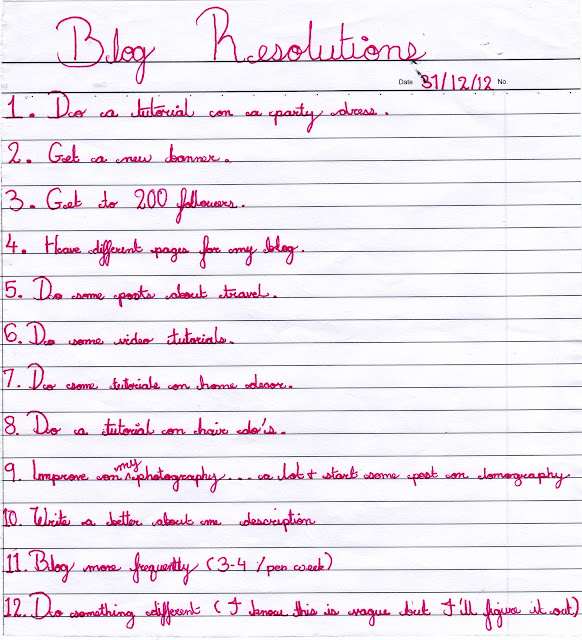 Blog Resolutions
Date 31/12/12 No.
1. Do a tutorial on a party dress.
2. Get a new banner.
3. Get to 200 followers.
4. Have different pages for my blog.
5. Do some posts about travel.
6. Do some video tutorials.
7. Do some tutorials on home decor.
8. Do a tutorial on hair do's.
9. Improve on my photography... a lot + start some post on lomography
10. Write a better about me description
11. Blog more frequently (3-4 / per week)
12. Do something different (I know this is vague but I'll figure it out)